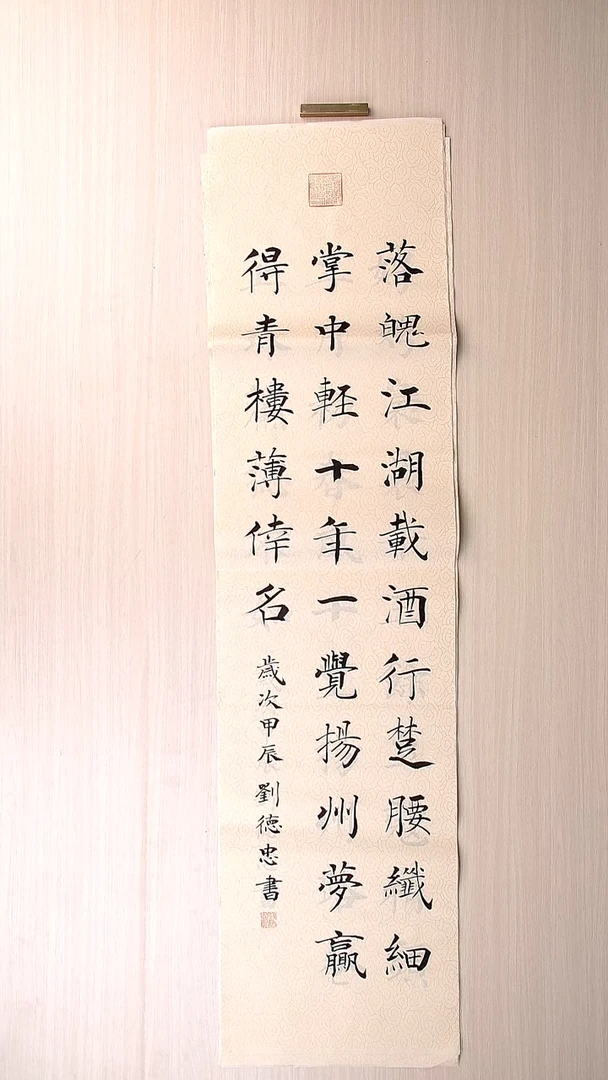 落魄江湖載酒行楚腰纖細
掌中軽十年一覺揚州夢贏
得青樓薄倖名
歲次甲辰劉德忠書